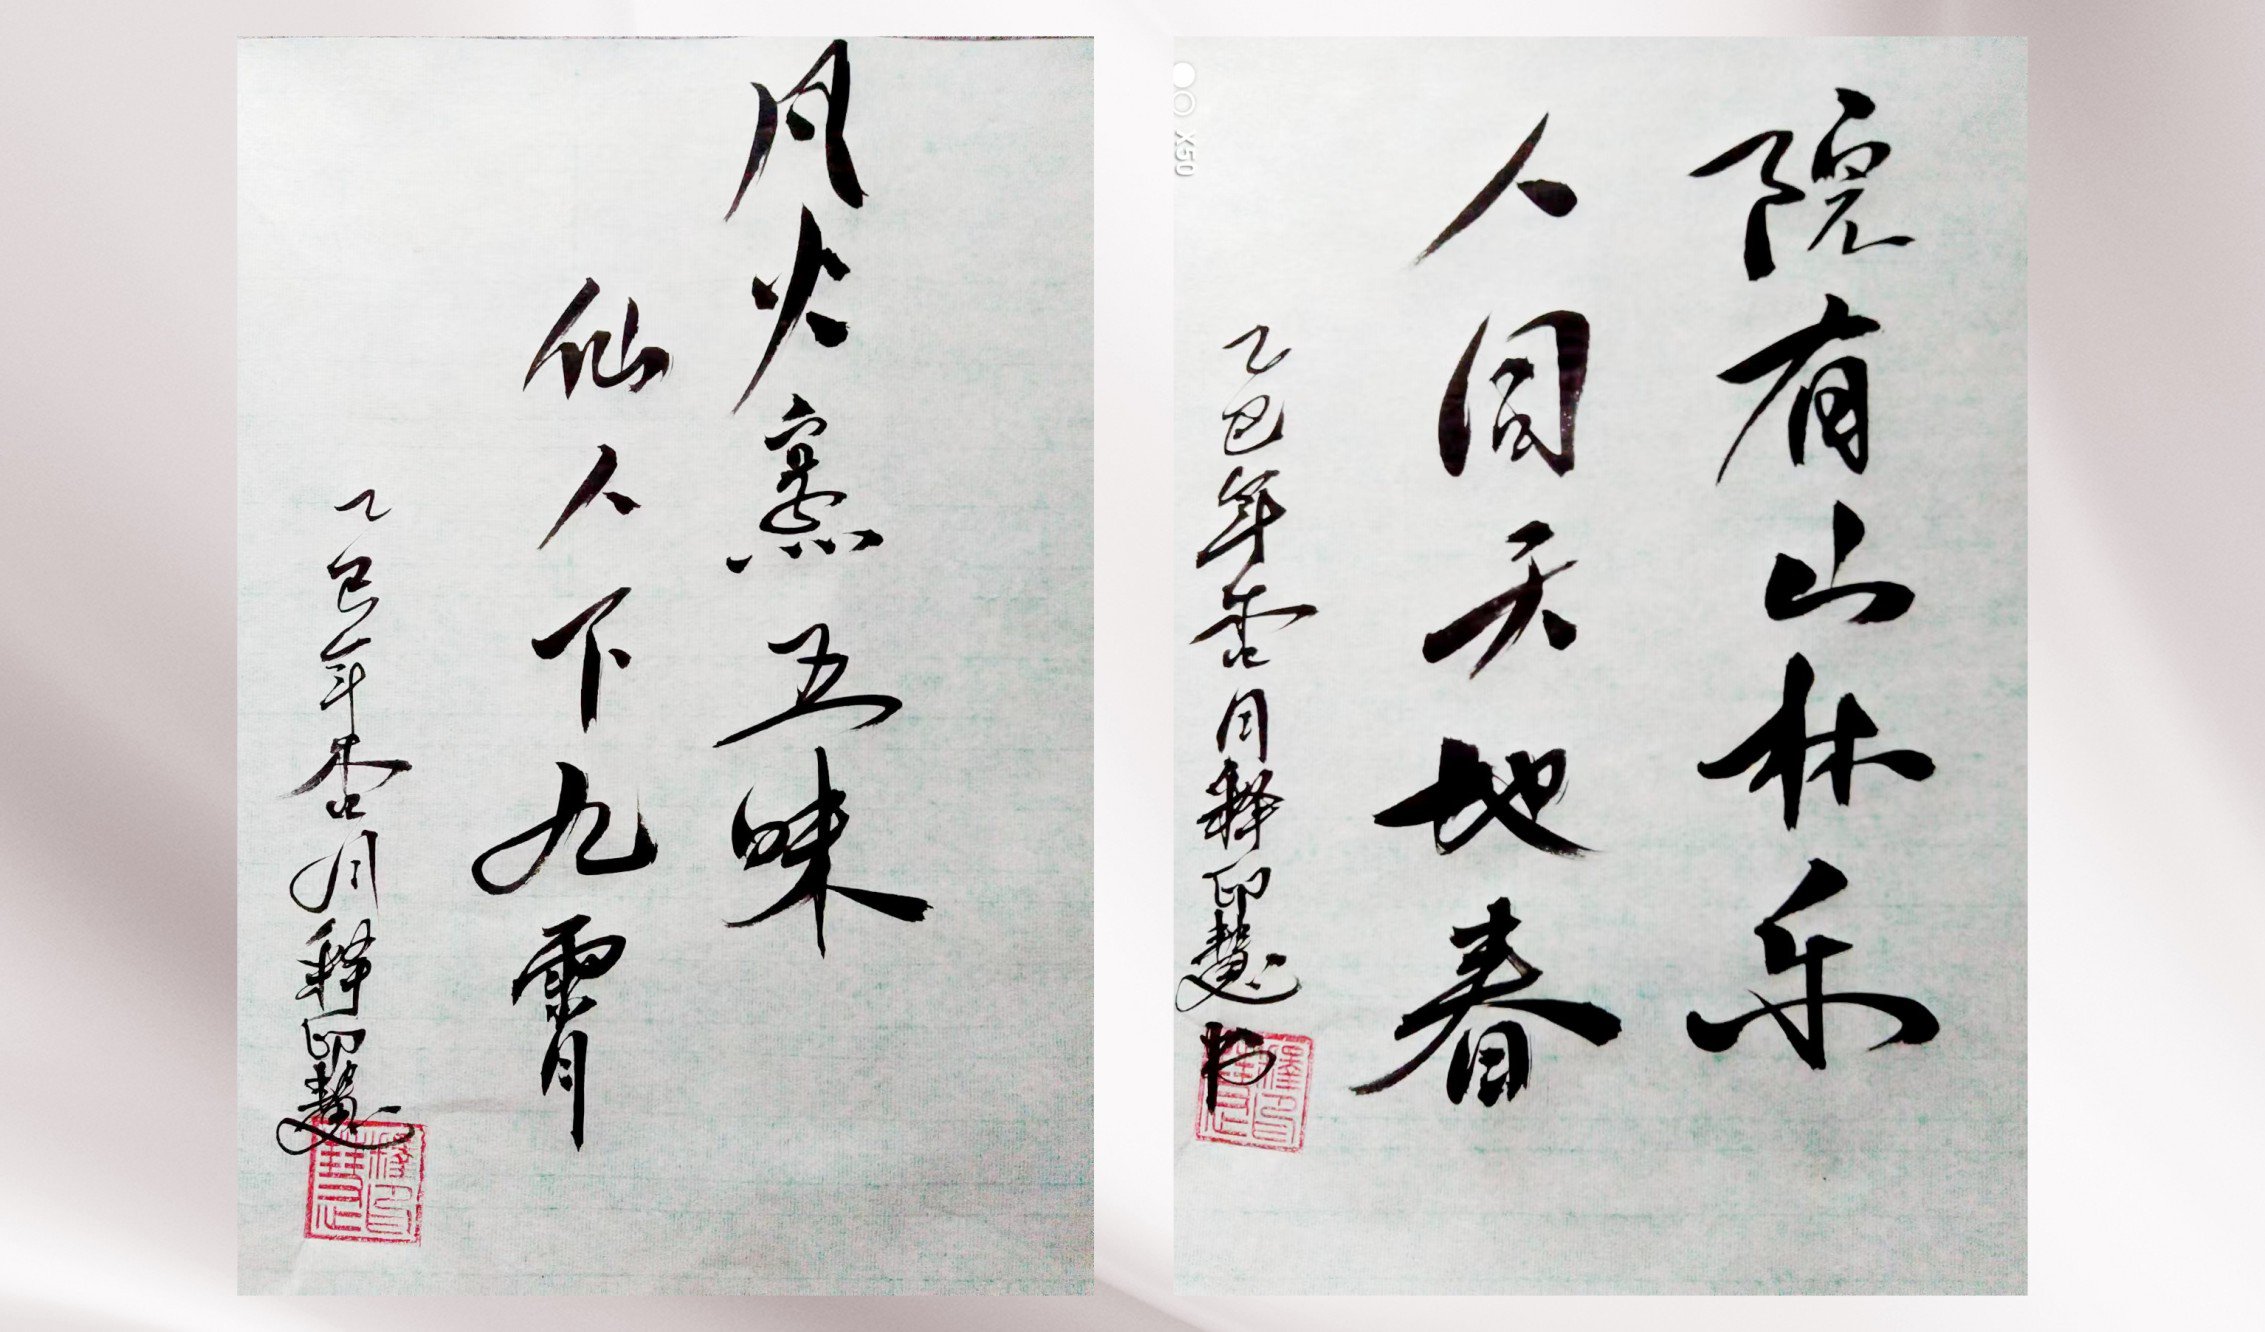 院有山林乐
人同天地春
乙巳年杏月释印慧书
X50
月火烹五味
仙人下九霄
乙巳年杏月释印慧